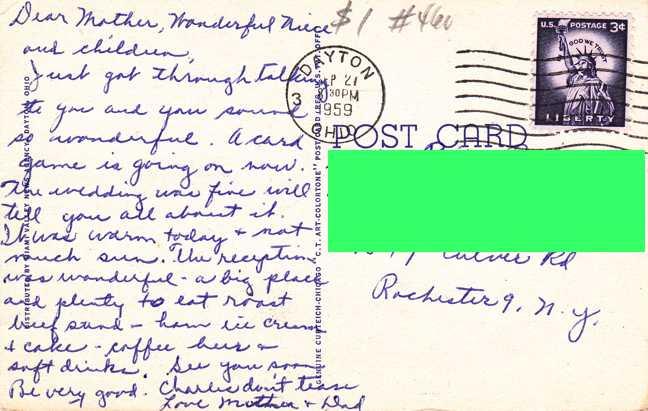 Dear Mother, Wonderful Niece
and children,
Just got through talking
to you and you sound
so wonderful. A card
game is going on now.
The wedding was fine will
tell you all about it.
It was warm today + not
much sun. The reception
was wonderful - a big place
and plenty to eat roast
beef stand - ham ice cream
+ cake - coffee beer +
soft drinks. See you soon
Be very good. Charlie don't tease
Love Mother + Dad
$1 #460
DAYTON
SEP 21
3 30PM
1959
OHIO
U.S. POSTAGE 3¢
IN GOD WE TRUST
LIBERTY
POST CARD
Culver Rd
Rochester 9, N.Y.
DISTRIBUTED BY GIANT VALLEY NEWS AGENCY, DAYTON, OHIO
GENUINE CURTEICH-CHICAGO "C.T. ART-COLORTONE" POST CARD (REG. U.S. PAT. OFF.)